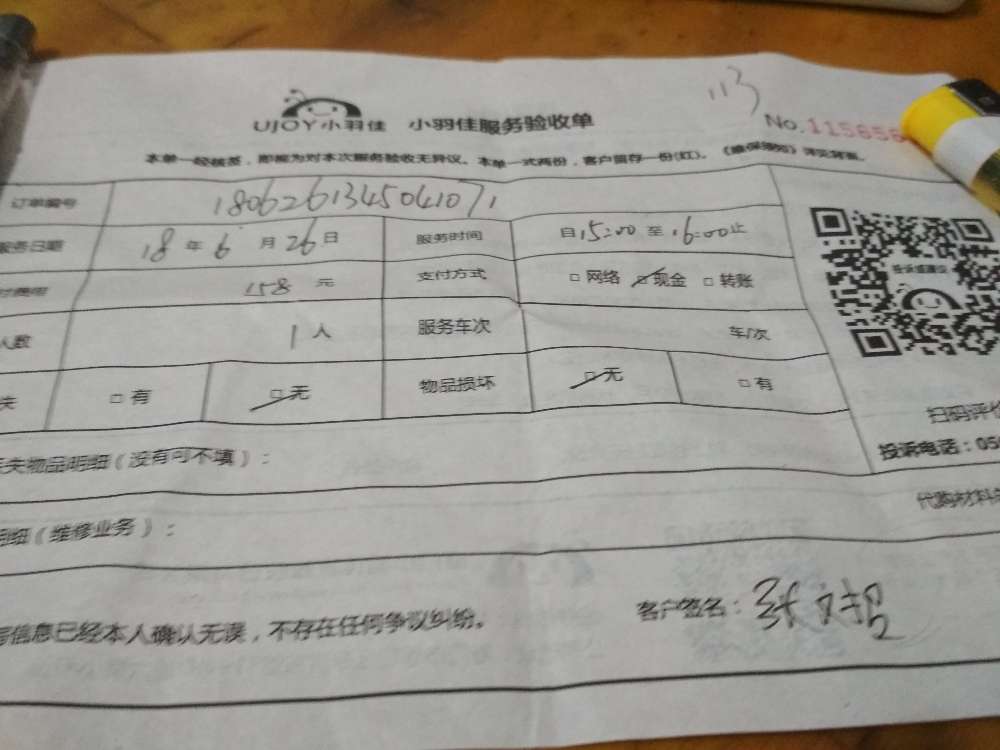 113
UJOY小羽佳 小羽佳服务验收单
No.115656
本单一经核签，即视为对本次服务验收无异议。本单一式两份，客户留存一份(红)。《维保须知》详见背面。
订单编号 1806261345041071
服务日期 18 年 6 月 26 日 服务时间 自 15:00 至 16:00 止
付费用 158 元 支付方式 □ 网络 □ 现金 □ 转账
人数 1 人 服务车次 车/次
失 □ 有 □ 无 物品损坏 □ 无 □ 有
投诉或建议
扫码评价
投诉电话：05
丢失物品明细（没有可不填）：
代购材料
明细（维修业务）：
写信息已经本人确认无误，不存在任何争议纠纷。
客户签名：张